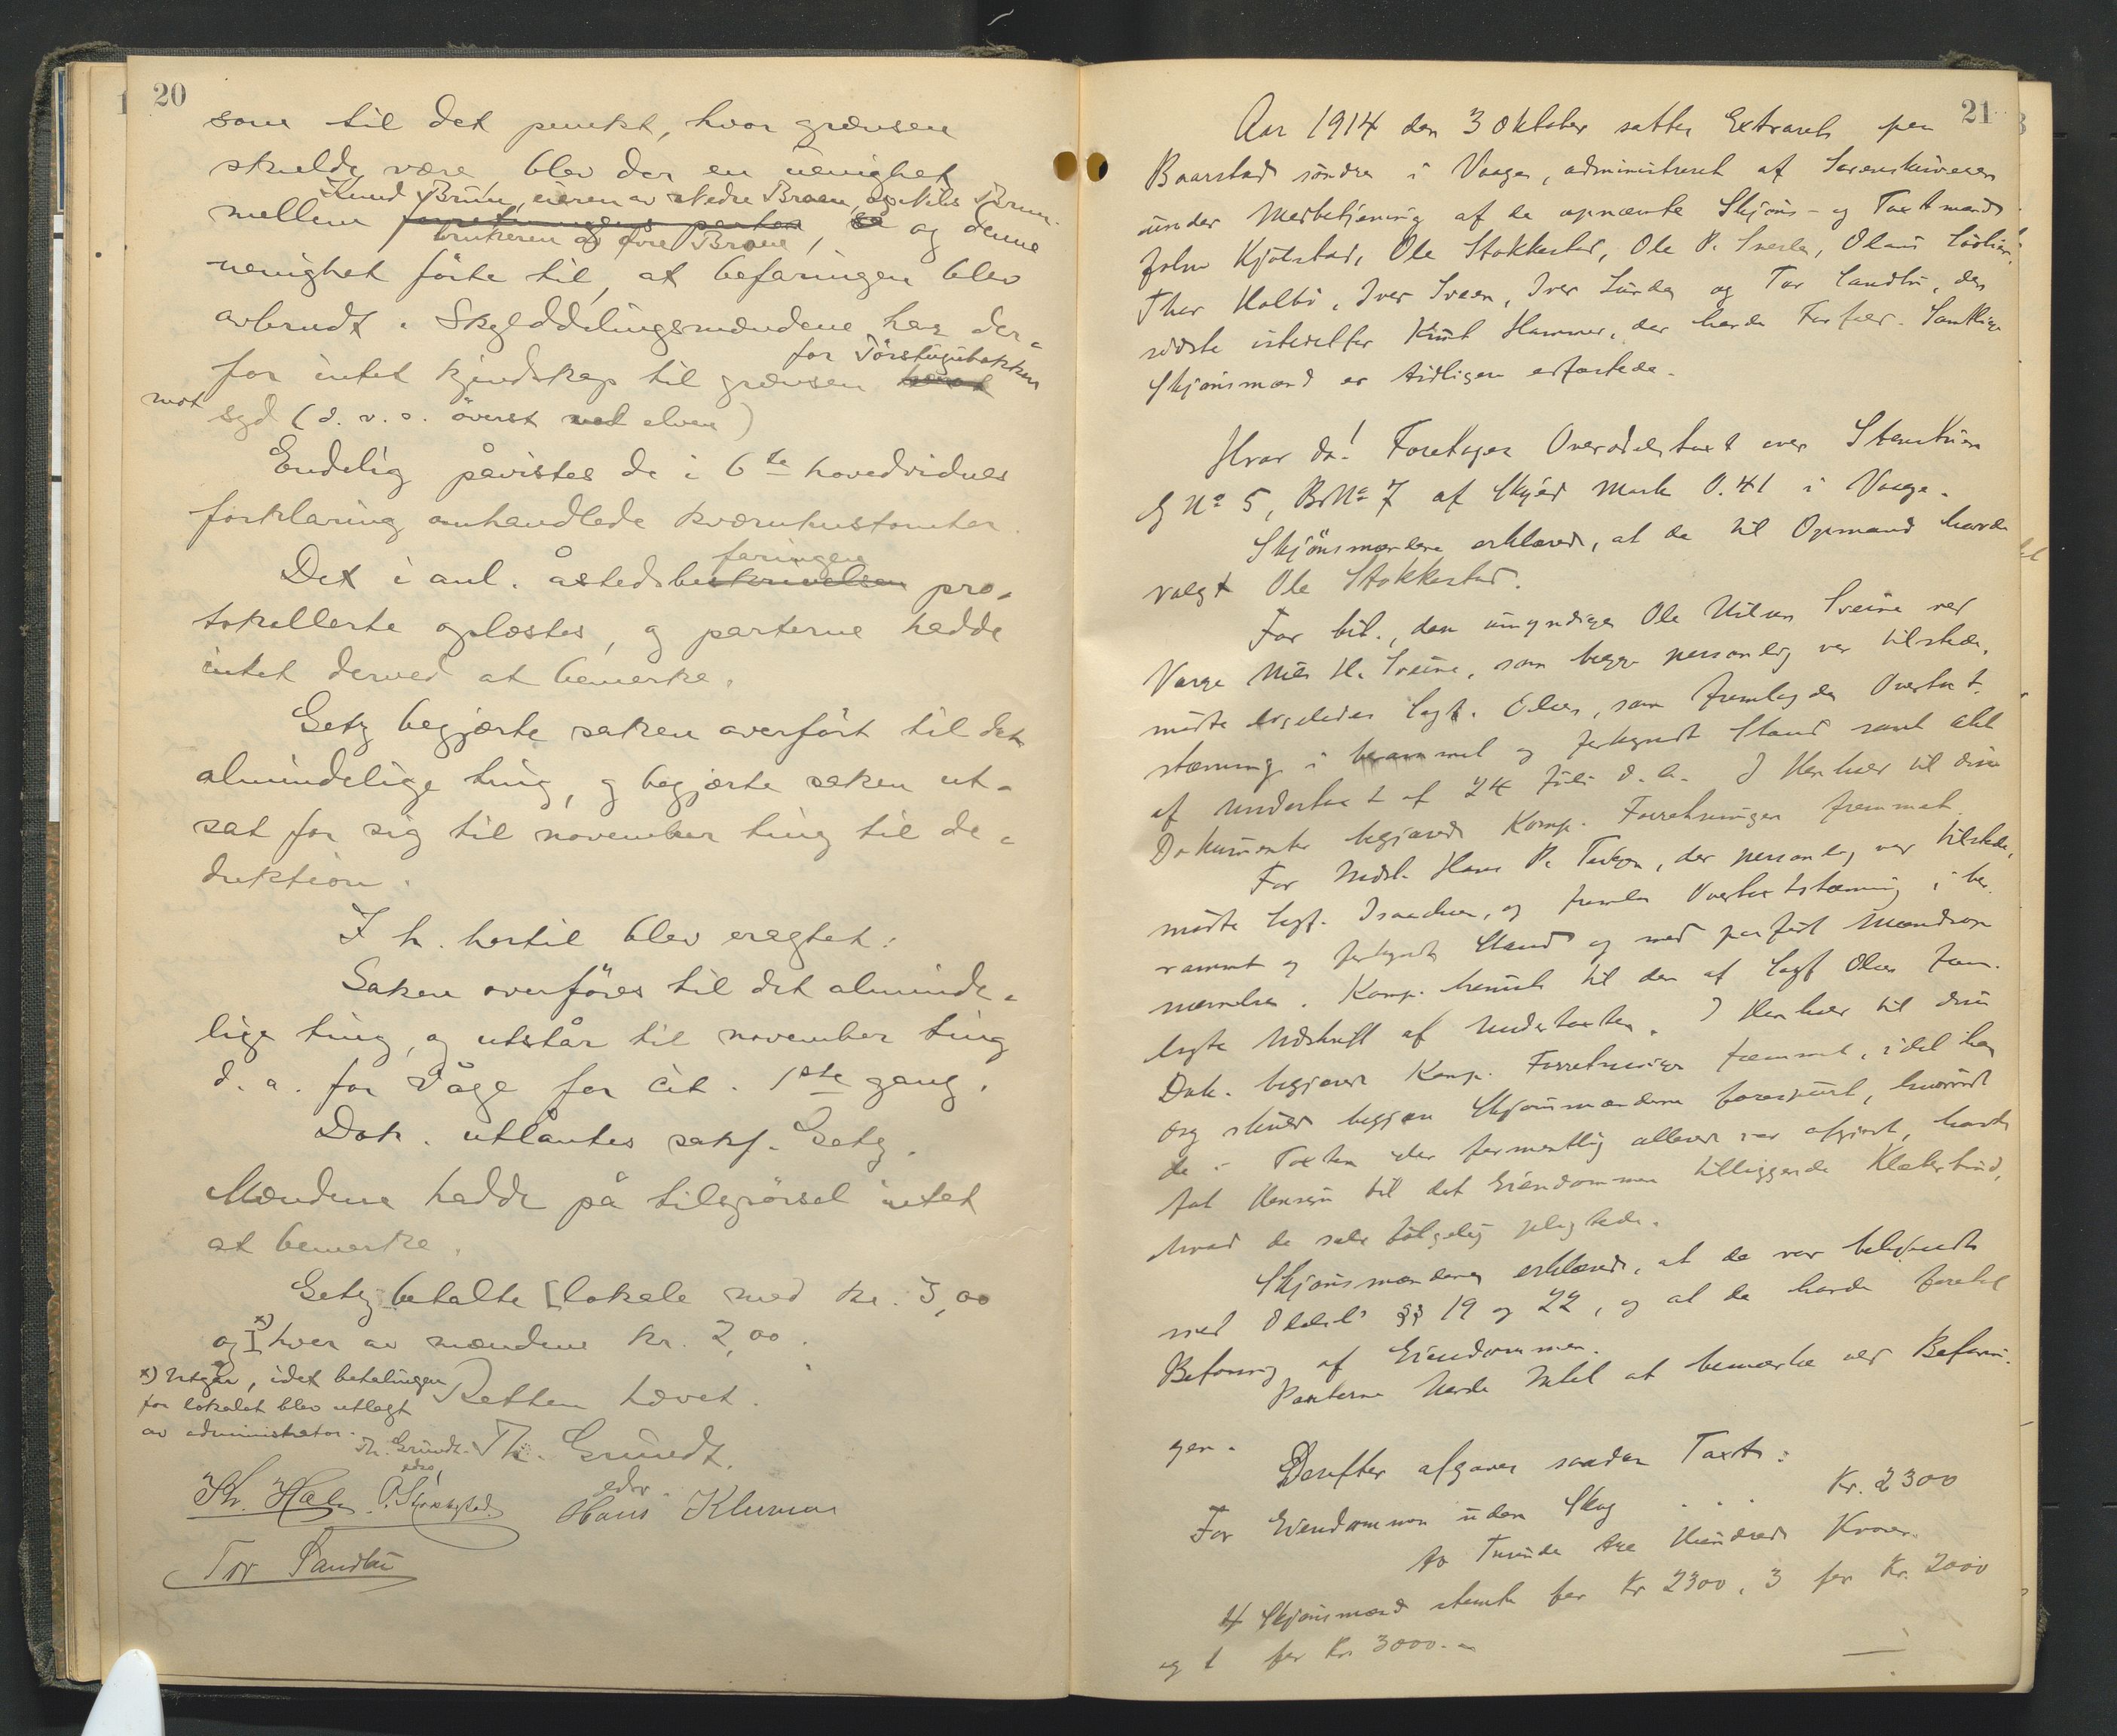 20
som til det punkt, hvor grænsen
skulde være blev der en uenighet
Knud Bruun, eieren av Nedre Braaen, og Nils Bruun
mellem forretningens parter, så og denne
brukeren av øvre Braaen
uenighet førte til, at befaringen blev
avbrudt. Skylddelingsmændene har der-
for Törstugubakken
for intet kjendskap til grænsen herat
mot syd (d. v. s. överst ved elven)
Endelig påvistes de i 6te hovedvidnes
forklaring omhandlede kværnhustomter.
faringen
Det i anl. åstedsbeskrivelsen pro-
tokollerte oplæstes, og parterne hadde
intet derved at bemerke.
Getz begjærte saken overført til det
almindelige ting, og begjærte saken ut-
sat for sig til november ting til de-
duktion.
I h. hertil blev eragtet:
Saken overföres til det alminde-
lige ting, og utstår til november ting
d. a. for Våge for cit. 1ste gang.
Dok. utlåntes sakf. Getz.
Mændene hadde på tilspörsel intet
at bemerke.
Getz betalte [lokale med kr. 5,00
og] x) hver av mændene kr. 2,00.
x) Utgår, idet betalingen
for lokalet blev utlagt
av administrator.
Th. Grundt.
Retten hævet.
Th. Grundt.
edsv.
edsv.
Hans Kluman
Tor Sandbu
21
Aar 1914 den 3 Oktober sattes Extraret paa
Baarstad söndre i Vaage, administreret af Sorenskriveren
under Medbetjening af de opnævnte Skjöns- og Taxtmænd
John Kjölstad, Ole Stokkestad, Ole P. Svesle, Olaus
Thor Holbö, Iver Sveen, Iver Lunde og Tor Sandbu, den
sidste istedetfor Knut Hammer, der havde Forfald. Samtlige
Skjönsmænd er tidligere edfæstede.
Hvor da! Foretoges Overodelstaxt over
G No 5, BrNo 7 af Skyld Mark 0.41 i Vaage.
Skjönsmændene erklærede, at de til Opmand havde
valgt Ole Stokkestad.
For Cit., den umyndige Ole Nilsen Sveine ved
Verge Nils H. Sveine, som begge personlig var tilstede,
mödte ligeledes Sagf. Olsen, som fremlagde Overtaxt-
stævning i berammet og forkyndt Stand samt Akt
af Undertaxt af 24 Juli d. A. I Henhold til disse
Dokumenter begjærede Komp. Forretningen fremmet.
For Indst. Hans P., der personlig var tilstede,
mödte Sagf. Isaachsen, og fremla Overtaxtstævning i be-
rammet og forkyndt Stand og med paaført Mændsop-
nævnelse. Komp. henviste til den af Sagf Olsen frem-
lagte Udskrift af Undertaxten. I Henhold til disse
Dok. begjærede Komp. Forretningen fremmet, idet han
og skulde begjære Skjönsmændene forespurt, hvorvidt
de i Taxten der formentlig allerede var afgjort, havde
tat Hensyn til det Eiendommen tilliggende,
hvad de selv fölgelig pligtede.
Skjönsmændene erklærede, at de var bekjendt
med Odelsl. §§ 19 og 22, og at de havde foretat
Befaring af Eiendommen.
Parterne havde Intet at bemærke ved Befarin-
gen.
Derefter afgaves saadan Taxt:
For Eiendommen uden Skog . . . Kr. 2300
to Tusinde tre Hundrede Kroner
4 Skjönsmænd stemte for Kr 2300, 3 for Kr. 2000
og 1 for Kr. 3000.-